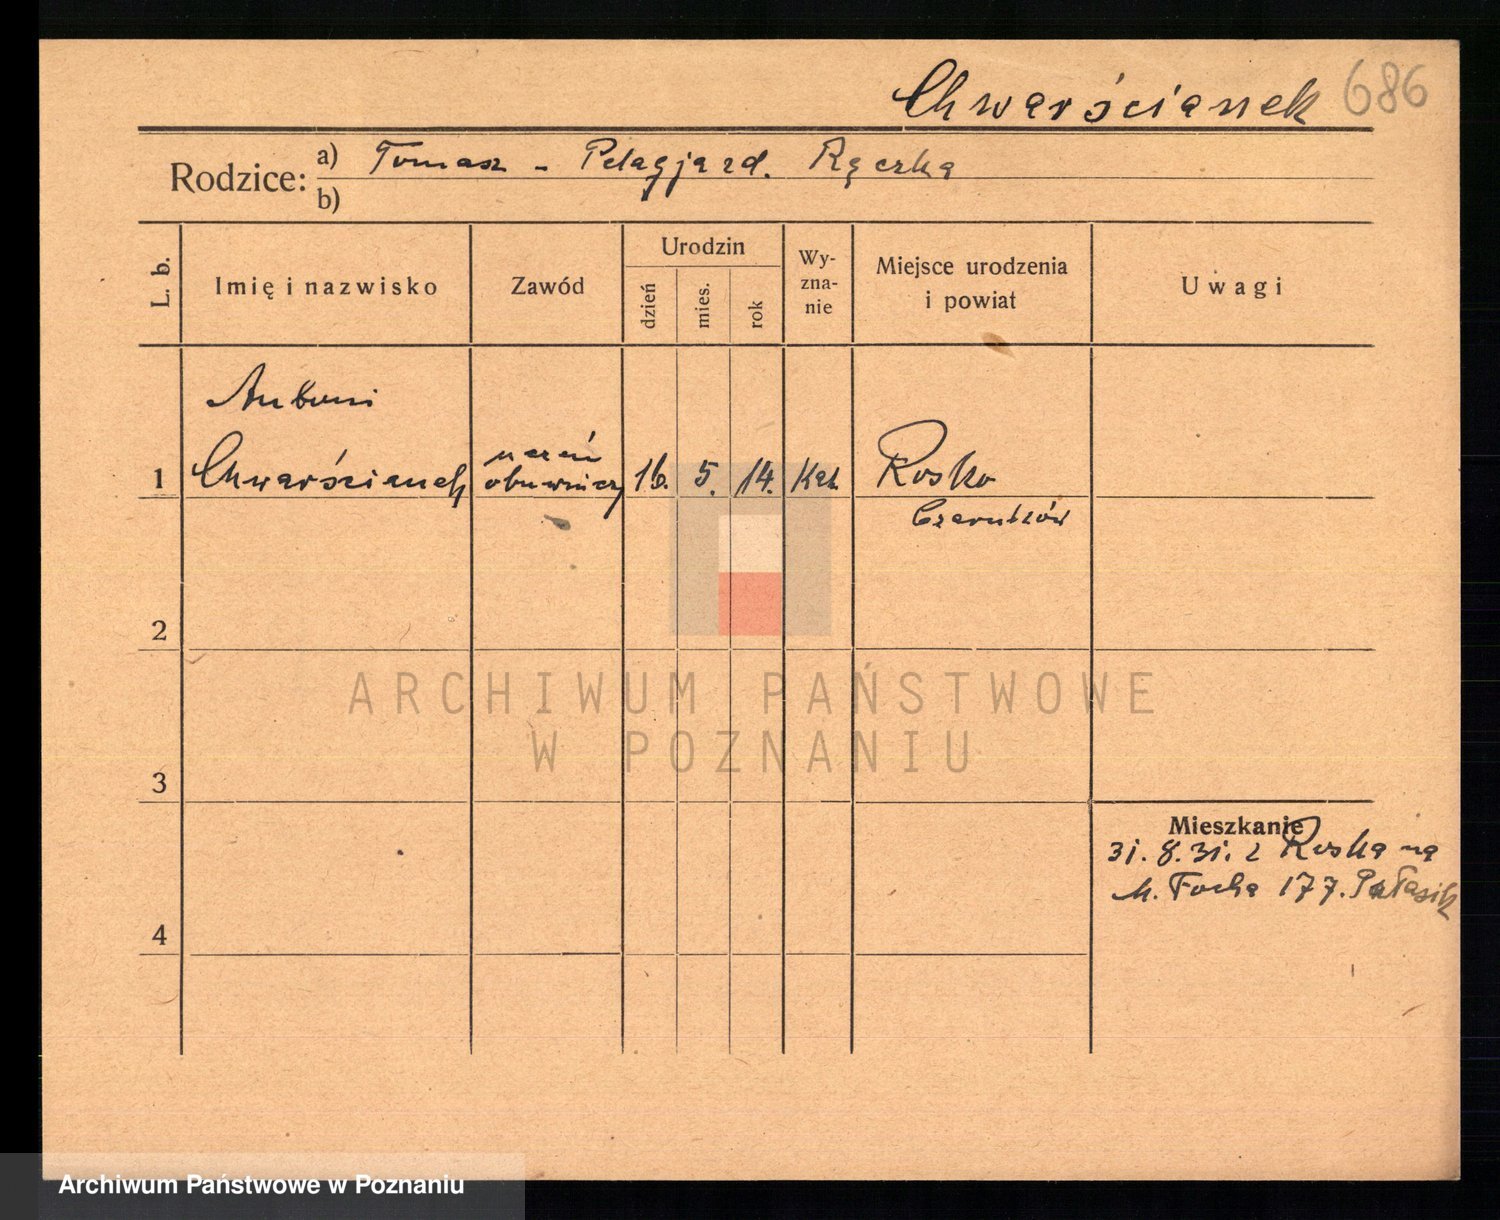 Chwarścianek 686
Rodzice: a) Tomasz - Pelagja zd. Ręczka
b)
L. b.
Imię i nazwisko
Zawód
Urodzin
dzień
mies.
rok
Wy-
zna-
nie
Miejsce urodzenia
i powiat
Uwagi
Antoni
1 Chwarścianek
uczeń
obuwniczy
16. 5. 14. Kat.
Rosko
Czarnków
2
3
4
Mieszkanie
31. 8. 31. z Roska na
M. Focha 177.
ARCHIWUM PAŃSTWOWE
W POZNANIU
Archiwum Państwowe w Poznaniu